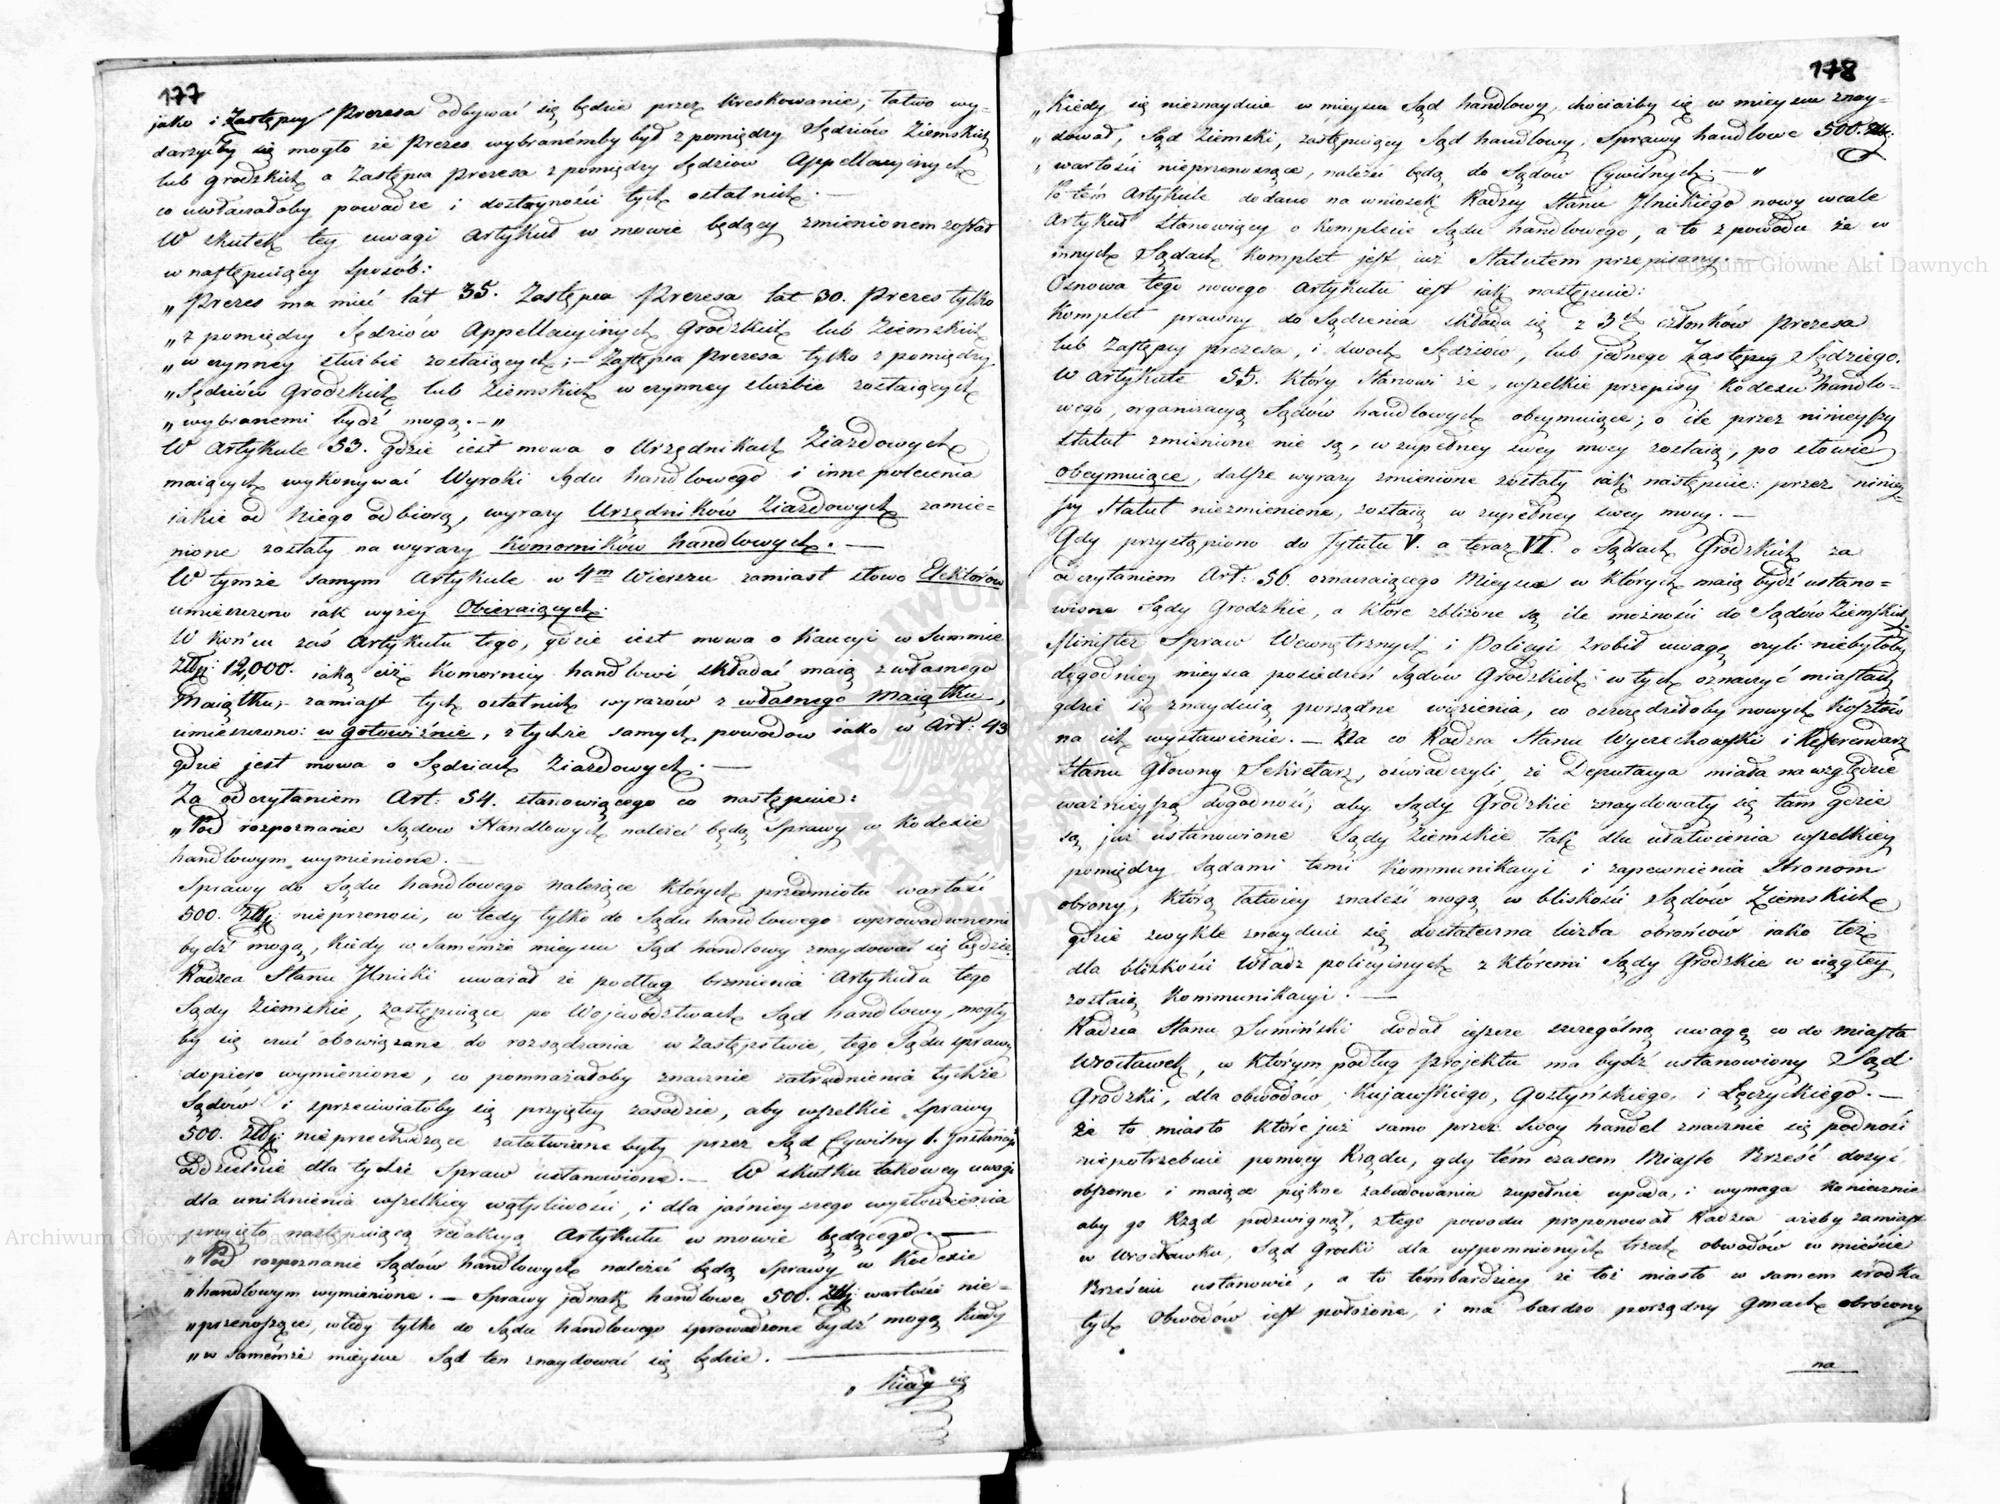 177
jako i Zastępcy Prezesa odbywać się będzie przez kreskowanie; łatwo wy-
darzyćby się mogło że Prezes wybranémby był z pomiędzy Sędziów Ziemskich
lub grodzkich a Zastępca Prezesa z pomiędzy Sędziów Appellacyinych
co uwłaczałoby powadze i dostoyności tych ostatnich. —
W skutek tey uwagi Artykuł w mowie będący zmienionem został
w następuiący sposób:
„Prezes ma mieć lat 35. Zastępca Prezesa lat 30. Prezes tylko
„z pomiędzy Sędziów Appellacyinych Grodzkich lub Ziemskich
„w czynney służbie zostaiących; — Zastępca Prezesa tylko z pomiędzy
„Sędziów Grodzkich lub Ziemskich w czynney służbie zostaiących
„wybranemi bydź mogą. — „
W Artykule 53. gdzie iest mowa o Urzędnikach Ziazdowych
maiących wykonywać Wyroki Sądu handlowego i inne polecenia
jakie od niego odbiorą, wyrazy Urzędników Ziazdowych zamie-
nione zostały na wyrazy Komorników handlowych. —
W tymże samym Artykule w 4m Wierszu zamiast słowa Elektorów
umieszczono iak wyżey Obieraiących.
W końcu zaś Artykułu tego, gdzie iest mowa o kaucyi w Summie
Złłp: 12,000. iaką ciż Komornicy handlowi składać maią z własnego
Maiątku, — zamiast tych ostatnich wyrazów z własnego Maiątku,
umieszczono: w gotowiźnie, z tychże samych powodów iako w Art: 43
gdzie jest mowa o Sędziach Ziazdowych. —
Za odczytaniem Art: 54. stanowiącego co następuie:
„Pod rozpoznanie Sądów Handlowych należeć będą Sprawy w Kodexie
handlowym wymienione. —
Sprawy do Sądu handlowego należące których przedmiotu wartość
500. Złłp: nieprzenosi, w tedy tylko do Sądu handlowego wprowadzonemi
bydź mogą, kiedy w Samémże mieyscu Sąd handlowy znaydować się będzie.
Radzca Stanu Ilnicki uważał że podług brzmienia Artykułu tego
Sądy Ziemskie, zastępuiące po Województwach Sąd handlowy, mogły
by się czuć obowiązane do rozsądzania w Zastępstwie, tego Sądu sprawy
dopiero wymienione, co pomnażałoby znacznie zatrudnienia tychże
Sądów i sprzeciwiałoby się przyiętey zasadzie, aby wszelkie Sprawy
500. Złłp: nieprzechodzące załatwione były przez Sąd Cywilny I. Instancyi
oddzielnie dla tychże Spraw ustanowione. — W skutku takowey uwagi
dla uniknienia wszelkiey wątpliwości, i dla jaśnieyszego wysłowienia
przyięto następuiącą redakcyą Artykułu w mowie będącego. —
„Pod rozpoznanie Sądów handlowych należeć będą Sprawy w Kodexie
„handlowym wymienione. — Sprawy jednak handlowe 500. Złłp: wartości nie-
„przenoszące, wtedy tylko do Sądu handlowego sprowadzone bydź mogą kiedy
„w Samémże mieyscu Sąd ten znaydować się będzie. —
„Kiedy się
178
„Kiedy się nieznaydzie w mieyscu Sąd handlowy, chociażby się w mieyscu znay-
„dował, Sąd Ziemski, zastępuiący Sąd handlowy, Sprawy handlowe 500. Złł:
„wartości nieprzenoszące, należeć będą do Sądów Cywilnych. — „
Po tém Artykule dodano na wniosek Radzcy Stanu Ilnickiego nowy wcale
Artykuł Stanowiący o komplecie Sądu handlowego, a to z powodu że w
innych Sądach Komplet jest już Statutem przepisany. —
Osnowa tego nowego Artykułu iest iak następuie:
Komplet prawny do Sądzenia składa się z 3ch członków Prezesa
lub Zastępcy prezesa, i dwóch Sędziów, lub jednego Zastępcy Sędziego.
W Artykule 55. który Stanowi że, wszelkie przepisy Kodexu handlo-
wego, organizacyą Sądów handlowych obeymuiące; o ile przez ninieyszy
Statut zmienione nie są, w zupełney swey mocy zostaią, po słowie
obeymuiące, dalsze wyrazy zmienione zostały iak następuie: przez niniey-
szy Statut niezmienione, zostaią w zupełney swey mocy. —
Gdy przystąpiono do Tytułu V. a teraz VI. o Sądach Grodzkich za
odczytaniem Art: 56. oznaczaiącego Mieysca w których maią bydź ustano-
wione Sądy Grodzkie, a które zbliżone są ile możności do Sądów Ziemskich,
Minister Spraw Wewnętrznych i Policyi zrobił uwagę czyli niebyłoby
dogodniey mieysca posiedzeń Sądów Grodzkich w tych oznaczyć miastach
gdzie się znayduią porządne więzienia, co oszczędziłoby nowych kosztów
na ich wystawienie. — Na co Radzca Stanu Wyczechowski i Referendarz
Stanu Główny Sekretarz, oświadczyli, że Deputacya miała na względzie
ważnieyszą dogodność, aby Sądy Grodzkie znaydowały się tam gdzie
są już ustanowione Sądy Ziemskie tak dla ułatwienia wszelkiey
pomiędzy Sądami temi Kommunikacyi i zapewnienia Stronom
obrony, którą łatwiey znaleść mogą w bliskości Sądów Ziemskich
gdzie zwykle znaydzie się dostateczna liczba obrońców iako też
dla bliskości Władz policyinych z któremi Sądy Grodzkie w ciągłey
zostaią Kommunikacyi. —
Radzca Stanu Sumiński dodał ieszcze szczególną uwagę co do miasta
Wrocławek, w którym podług projektu ma bydź ustanowiony Sąd
Grodzki, dla obwodów Kujawskiego, Gostyńskiego, i Łęczyckiego. —
Że to miasto które już samo przez swoy handel znacznie się podnosi
niepotrzebuie pomocy Rządu, gdy tém czasem Miasto Brześć dosyć
obszerne i maiące piękne zabudowania zupełnie upada, i wymaga koniecznie
aby go Rząd podzwignął, z tego powodu proponował Radzca ażeby zamiast
w Wrocławku, Sąd Grocki dla wspomnionych trzech obwodów w mieście
Brześciu ustanowić, a to témbardziey że toż miasto w samem środku
tych Obwodów iest położone, i ma bardzo porządny Gmach obrócony
na
Archiwum Główne Akt Dawnych
Archiwum Główne Akt Dawnych